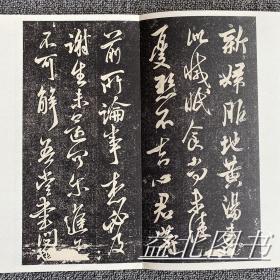 新婦服地黃湯來
似減眠食尚未佳
憂懸不去心君等
前所論事想必及
謝生未還可爾進退
不可解吾當書問